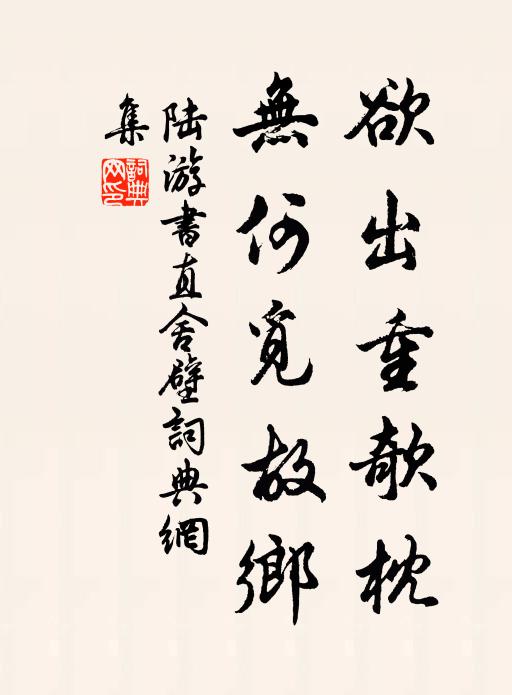 欲出重欹枕
無何覓故鄉
陆游書直舍壁詞典網
集
詞典
网印